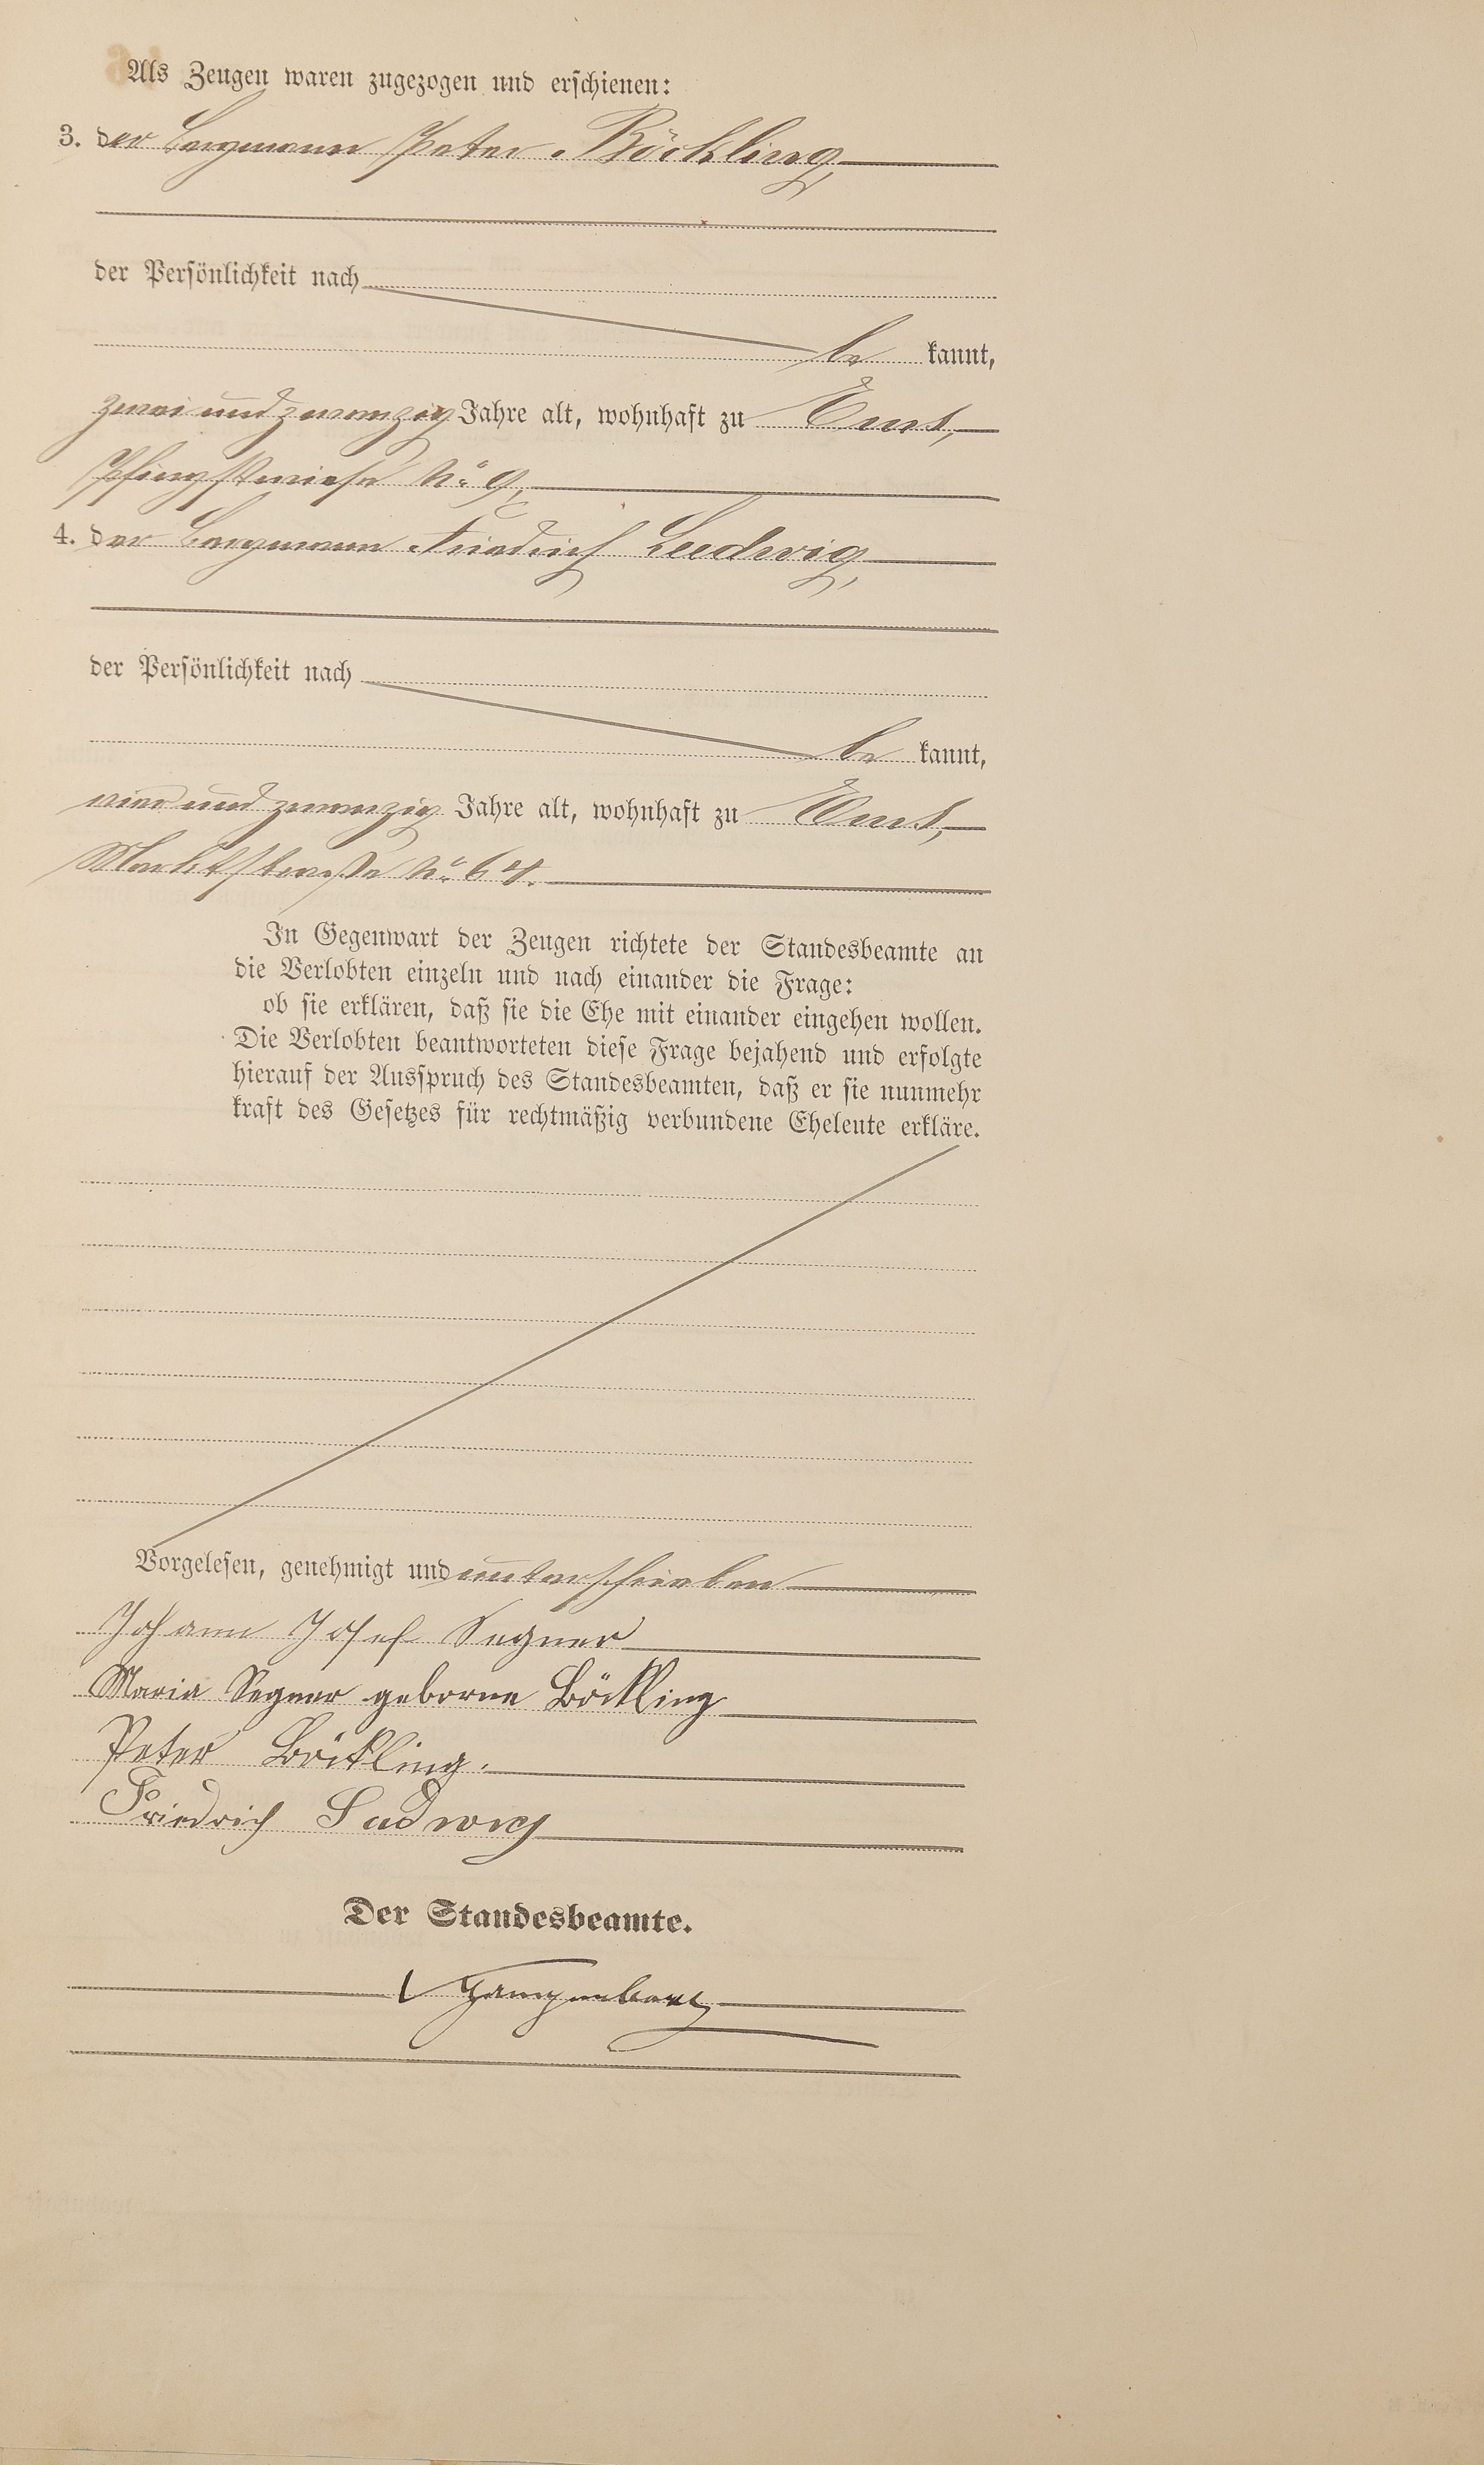 Als Zeugen waren zugezogen und erschienen:
3. der Bergmann Peter Böckling,
der Persönlichkeit nach
be kannt,
zwei und zwanzig Jahre alt, wohnhaft zu Ems,
Pfingstwiese No 9,
4. der Bergmann Friedrich Ludwig,
der Persönlichkeit nach
be kannt,
vier und zwanzig Jahre alt, wohnhaft zu Ems,
Marktstraße No 64.
In Gegenwart der Zeugen richtete der Standesbeamte an
die Verlobten einzeln und nach einander die Frage:
ob sie erklären, daß sie die Ehe mit einander eingehen wollen.
Die Verlobten beantworteten diese Frage bejahend und erfolgte
hierauf der Ausspruch des Standesbeamten, daß er sie nunmehr
kraft des Gesetzes für rechtmäßig verbundene Eheleute erkläre.
Vorgelesen, genehmigt und unterschrieben
Johann Josef Segner
Maria Segner geborne Böckling
Peter Böckling.
Friedrich Ludwig
Der Standesbeamte.